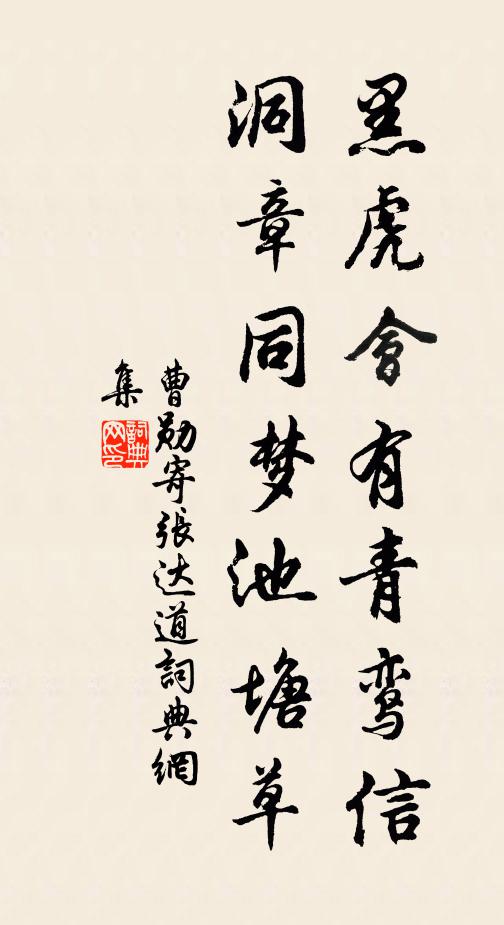 黑虎會有青鸾信
洞章同梦池塘草
曹勋寄張达道詞典網
集
詞典
网印